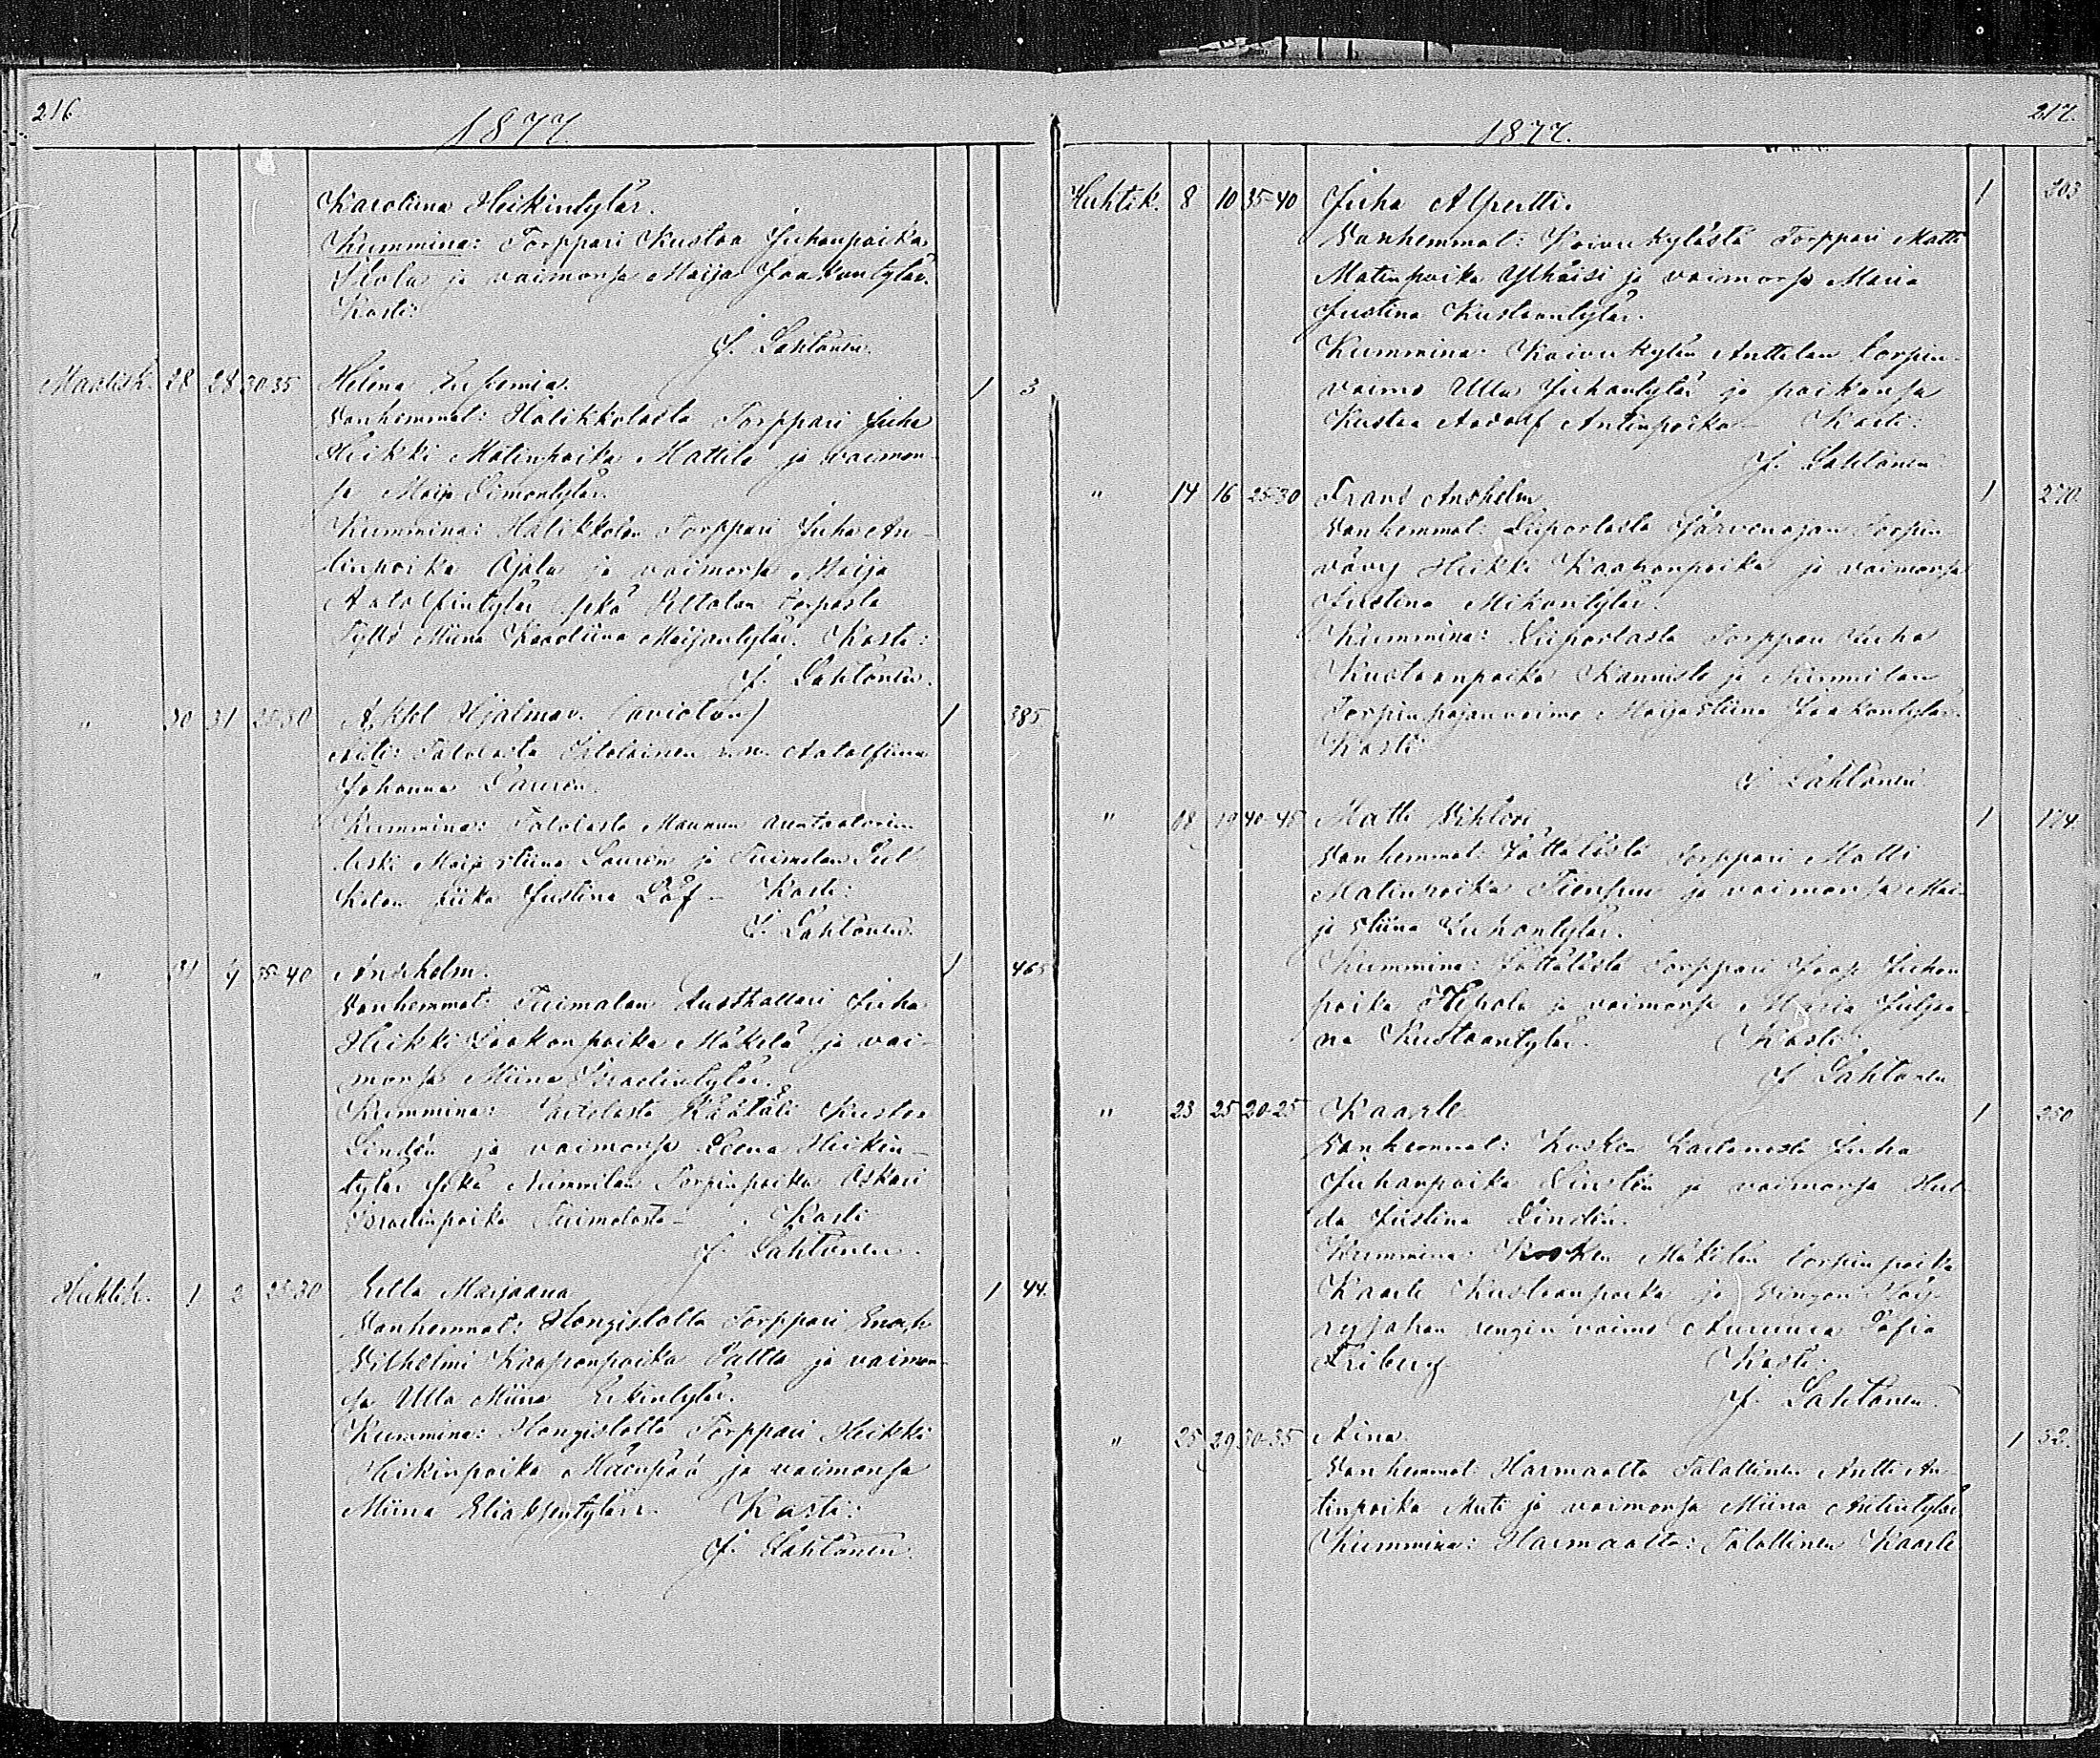 216
1877.
Karoliina Heikintytär.
Kummina: Torppari Kustaa Juhanpoika
Ilola ja vaimonsa Maija Jaakontytär.
Kasti:
J. Lahtonen.
Maalisk. 28 28 30 35 Helena Eufemia. 1 3
Vanhemmat: Halikkolasta Torppari Juha
Heikki Matinpoika Mattila ja vaimon-
sa Maija Simontytär.
Kummina: Halikkolan Torppari Juha An-
tinpoika Ojala ja vaimonsa Maija
Aatolfintytär sekä Peltolan torpasta
Tyttö Miina Karoliina Maijantytär. Kasti:
J. Lahtonen.
" 30 31 25-30 Aksel Hjalmar. (avioton) 1 385
Äiti: Talolasta Itselainen n.n. Aatolfiina
Johanna Laurén.
Kummina: Talolasta Maunun
leski Maija Stiina Laurén ja Tuimalan
piika Justina Löf - Kasti:
J. Lahtonen.
" 31 4 35-40 Anshelm. 1 465
Vanhemmat: Tuimalan Juha
Heikki Jaakonpoika Mäkelä ja vai-
monsa Miina Israelintytär.
Kummina: Räätäli Kustaa
Lindén ja vaimonsa Leena Heikin-
tytär sekä Nummilan Torpinpoika Oskari
Israelinpoika Tuimalasta - Kasti
J. Lahtonen.
Huhtik. 1 2 25-30 Ella Marjaana 1 44.
Vanhemmat: Hongistolta Torppari Enock
Vilhelmi Kaaponpoika ja vaimon-
sa Ulla Miina Erkintytär.
Kummina: Hongistolta Torppari Heikki
Heikinpoika Mäenpää ja vaimonsa
Miina Eliaksentytär. Kasti:
J. Lahtonen.
217.
1877.
Huhtik. 8 10 35-40 Juha Alpertti. 1 303
Vanhemmat: Koivukylästä Torppari Matti
Matinpoika Ylhäisi ja vaimonsa Maria
Justina Kustaantytär.
Kummina: Koivukylän Anttilan torpin-
vaimo Ulla Juhantytär ja poikansa
Kustaa Aadolf Antinpoika - Kasti:
J. Lahtonen
" 14 16 25-30 Frans Anshelm 1 270.
Vanhemmat: Liipolasta Järvenojan Torpin-
vävy Heikki Kaaponpoika ja vaimonsa
Justina Mikontytär.
Kummina: Torppari Juha
Kustaanpoika Kannisto ja Nummilan
Torpinpojanvaimo Maija Stiina Jaakontytär.
Kasti
J. Lahtonen.
" 18 19 40-45 Matti Vihtori 1 174.
Vanhemmat: Torppari Matti
Matinpoika Tiensuu ja vaimonsa Mai-
ja Stiina Juhontytär.
Kummina: Torppari Jaap Juhan
poika Hepola ja vaimonsa Maria Juljaa
na Kustaantytär. Kasti:
J. Lahtonen
" 23 25 20-25 Kaarle 1 250
Vanhemmat: Kosken Juha
Juhanpoika ja vaimonsa Hul-
da Justina Lindén.
Kummina: Kosken Mäkilän torpinpoika
Kaarle Kustaanpoika ja
rengin vaimo Auruura Sofia
Friberg Kasti:
J. Lahtonen.
" 25 29 30-35 Aina. 1 52.
Vanhemmat: Harmaalta Talollinen Antti An-
tinpoika ja vaimonsa Miina Antintytär
Kummina: Harmaalta: Talollinen Kaarle